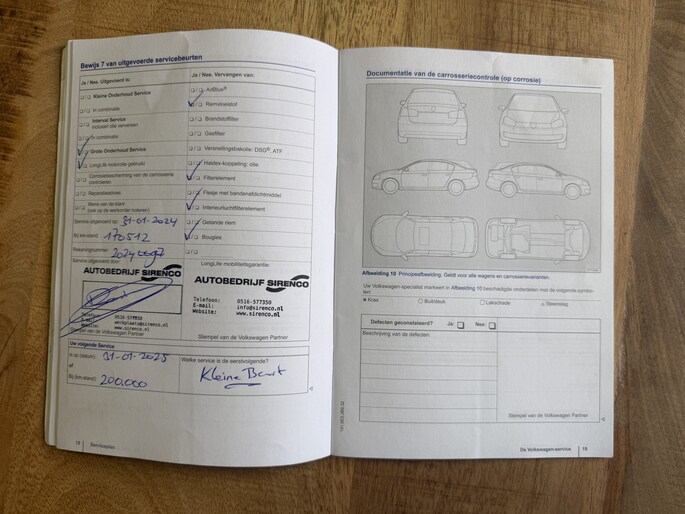 Bewijs 7 van uitgevoerde servicebeurten
Ja / Nee. Uitgevoerd is:
Kleine Onderhoud Service
In combinatie
Interval Service
Inclusief olie verversen
In combinatie
Grote Onderhoud Service
LongLife motorolie gebruikt
Corrosiebescherming van de carrosserie
controleren
Reparatieadvies
Wens van de klant
(ook op de werkorder noteren)
Service uitgevoerd op: 31-01-2024
Bij km-stand: 170512
Rekeningnummer:
Service uitgevoerd door:
AUTOBEDRIJF SIRENCO
0516-577350
E-mail: werkplaats@sirenco.nl
Website: www.sirenco.nl
Stempel van de Volkswagen Partner
Ja / Nee. Vervangen van:
AdBlue®
Remvloeistof
Brandstoffilter
Gasfilter
Versnellingsbakolie: DSG®, ATF
Haldex-koppeling: olie
Filterelement
Flesje met bandenafdichtmiddel
Interieurluchtfilterelement
Getande riem
Bougies
LongLife mobiliteitsgarantie:
AUTOBEDRIJF SIRENCO
Telefoon: 0516-577350
E-mail: info@sirenco.nl
Website: www.sirenco.nl
Stempel van de Volkswagen Partner
Uw volgende Service
Is op (datum): 31-01-2025
of
Bij (km-stand): 200.000
Welke service is de eerstvolgende?
Kleine Beurt
18 Serviceplan
Documentatie van de carrosseriecontrole (op corrosie)
Afbeelding 10 Principeafbeelding. Geldt voor alle wagens en carrosserievarianten.
Uw Volkswagen-specialist markeert in Afbeelding 10 beschadigde onderdelen met de volgende symbo-
len:
Kras
Buil/deuk
Lakschade
Steenslag
Defecten geconstateerd? Ja: Nee:
Beschrijving van de defecten:
Stempel van de Volkswagen Partner
De Volkswagen-service 19